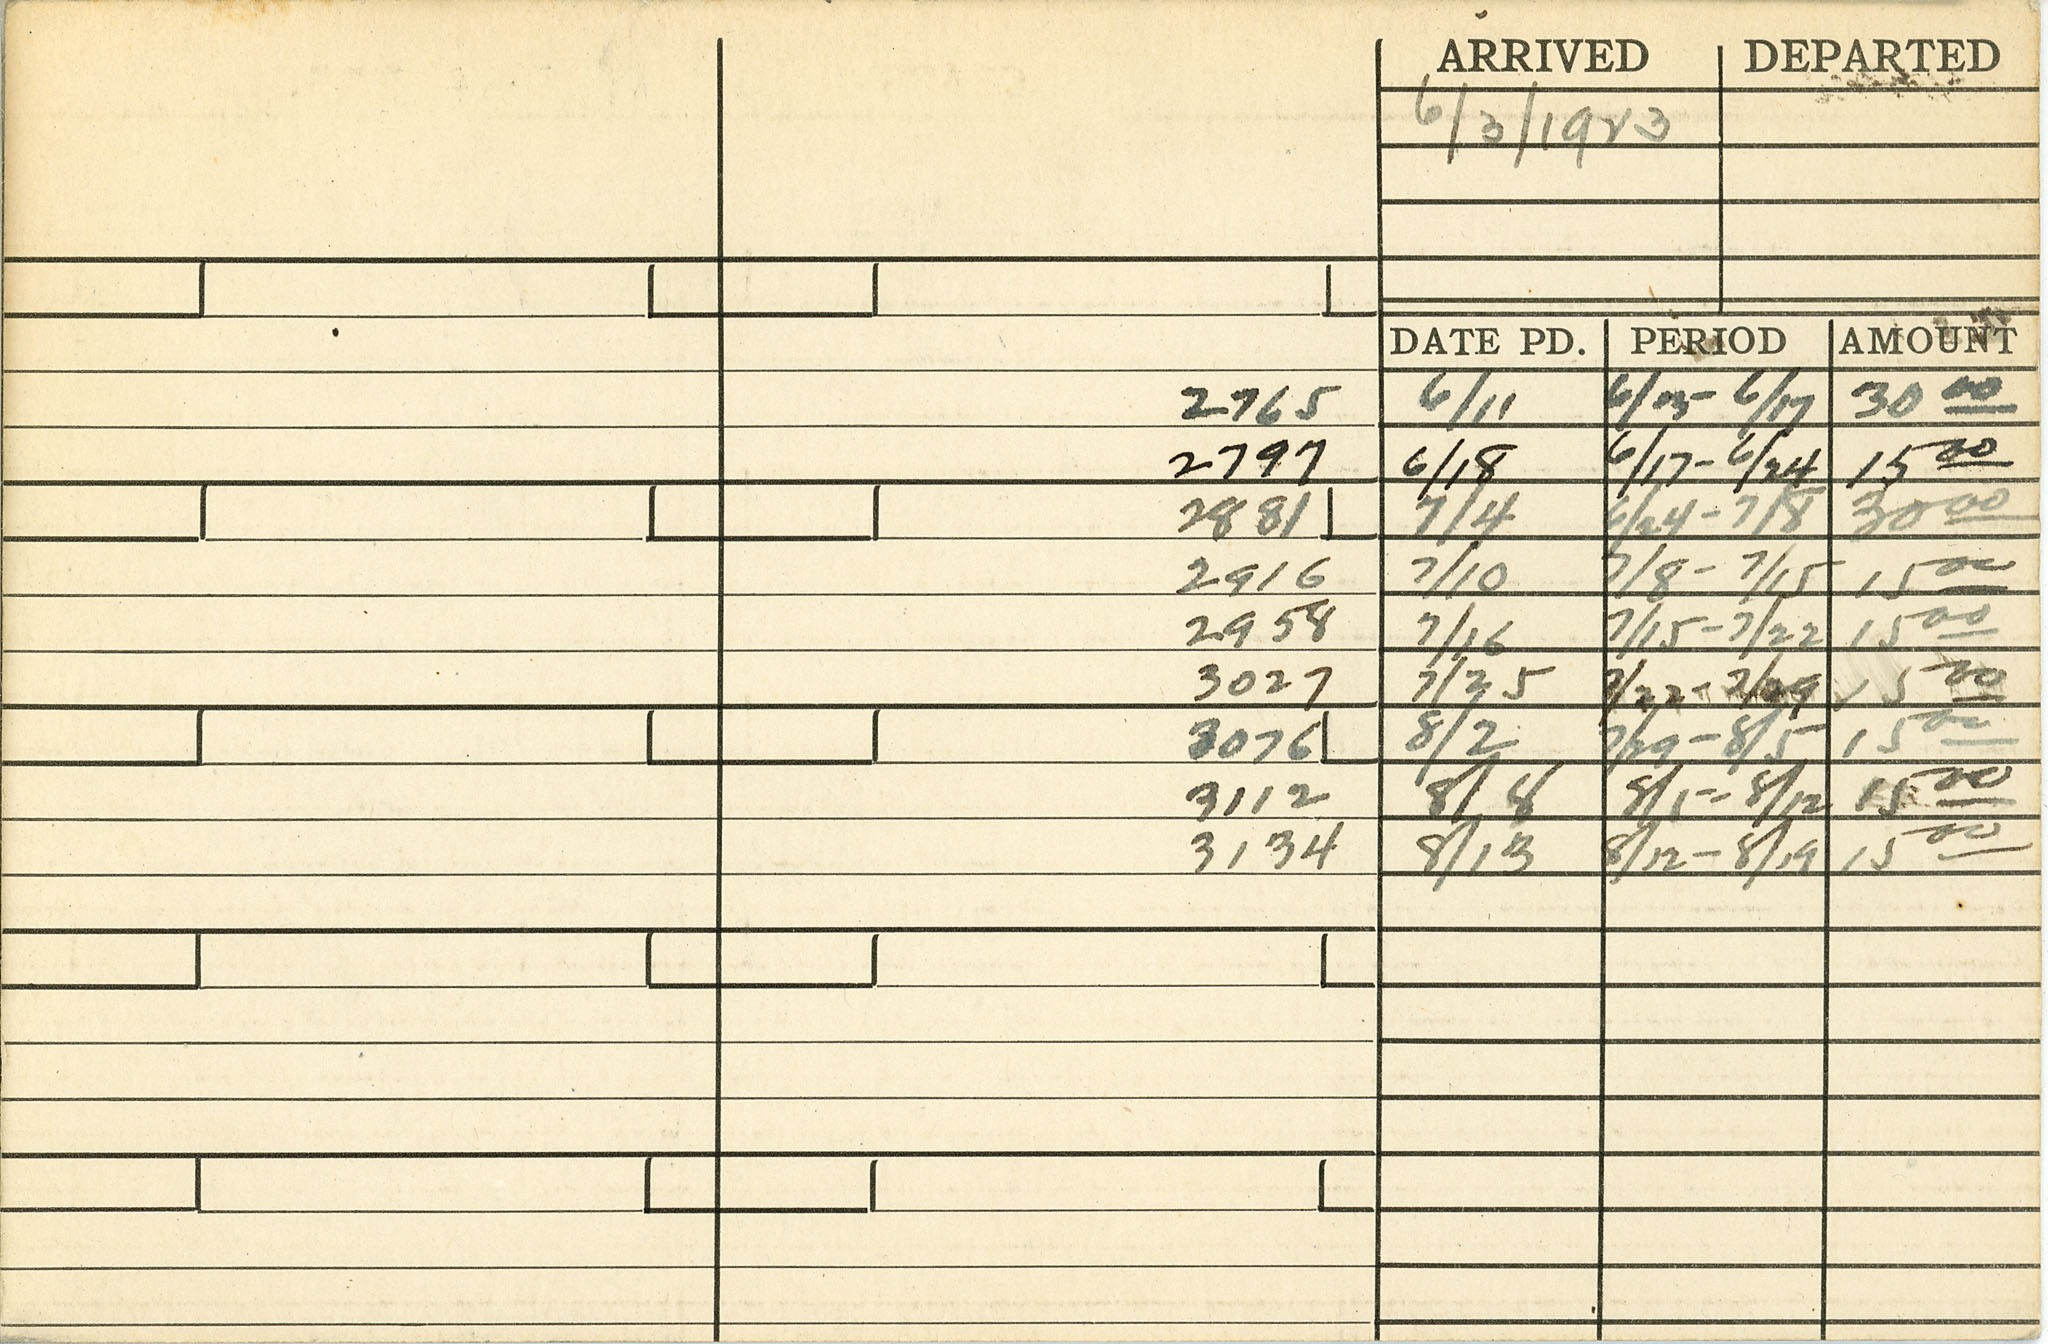 ARRIVED DEPARTED
6/3/1923
DATE PD. PERIOD AMOUNT
2765 6/11 6/17 30 00
2797 6/18 6/17 - 6/24 15 00
2881 7/4 6/24 - 7/8 30 00
2916 7/10 7/8 - 7/15 15 00
2958 7/16 7/15 - 7/22 15 00
3027 7/25 7/22 - 7/29 15 00
3076 8/2 7/29 - 8/5 15 00
3112 8/8 8/5 - 8/12 15 00
3134 8/13 8/12 - 8/19 15 00